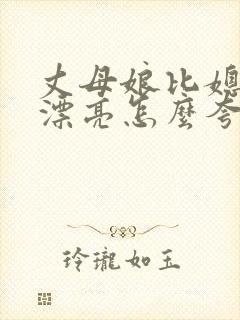 丈母娘比媳
漂亮怎麼夸
玲瓏如玉